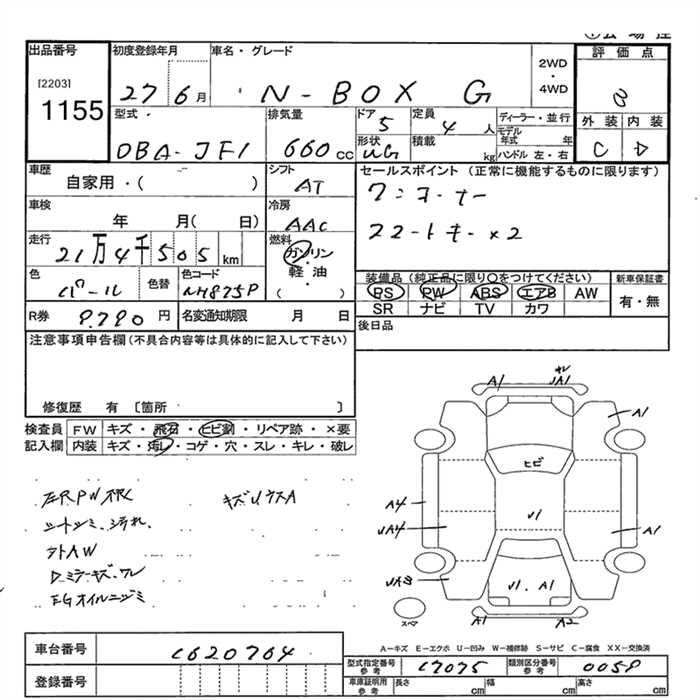 出品番号
[2203]
1155
初度登録年月
27 6月
車名・グレード
N-BOX G
2WD
・
4WD
評価点
3
外装 内装
C D
型式
DBA-JF1
排気量
660cc
ドア
5
定員
4人
形状
積載
kg
ディーラー・並行
モデル年式 年
ハンドル 左・右
車歴
自家用・( )
シフト
AT
車検
年 月( 日)
冷房
AAC
走行
21万4千505km
燃料
ガソリン
・
軽油
・
( )
色
パール
色替
色コード
NH875P
R券
9.790円
名変通知期限 月 日
セールスポイント (正常に機能するものに限ります)
ワンオーナー
スマートキー×2
装備品 (純正品に限り○をつけてください)
PS PW ABS エアB AW
SR ナビ TV カワ
新車保証書
有・無
後日品
注意事項申告欄(不具合内容等は具体的に記入して下さい)
修復歴 有 〔箇所 〕
検査員記入欄
FW キズ・飛石・ヒビ割・リペア跡・×要
内装 キズ・汚レ・コゲ・穴・スレ・キレ・破レ
シートシミ、汚れ、
外AW
Dミラーキズ、ワレ
EGオイルニジミ
A1
A1
ヒビ
A4
A1
A1
A2
スペア
A-キズ E-エクボ U-凹み W-補修跡 S-サビ C-腐食 XX-交換済
車台番号
C620764
登録番号
型式指定番号
参考
17075
類別区分番号
参考
車庫証明用
参考
長さ cm
幅 cm
高さ cm